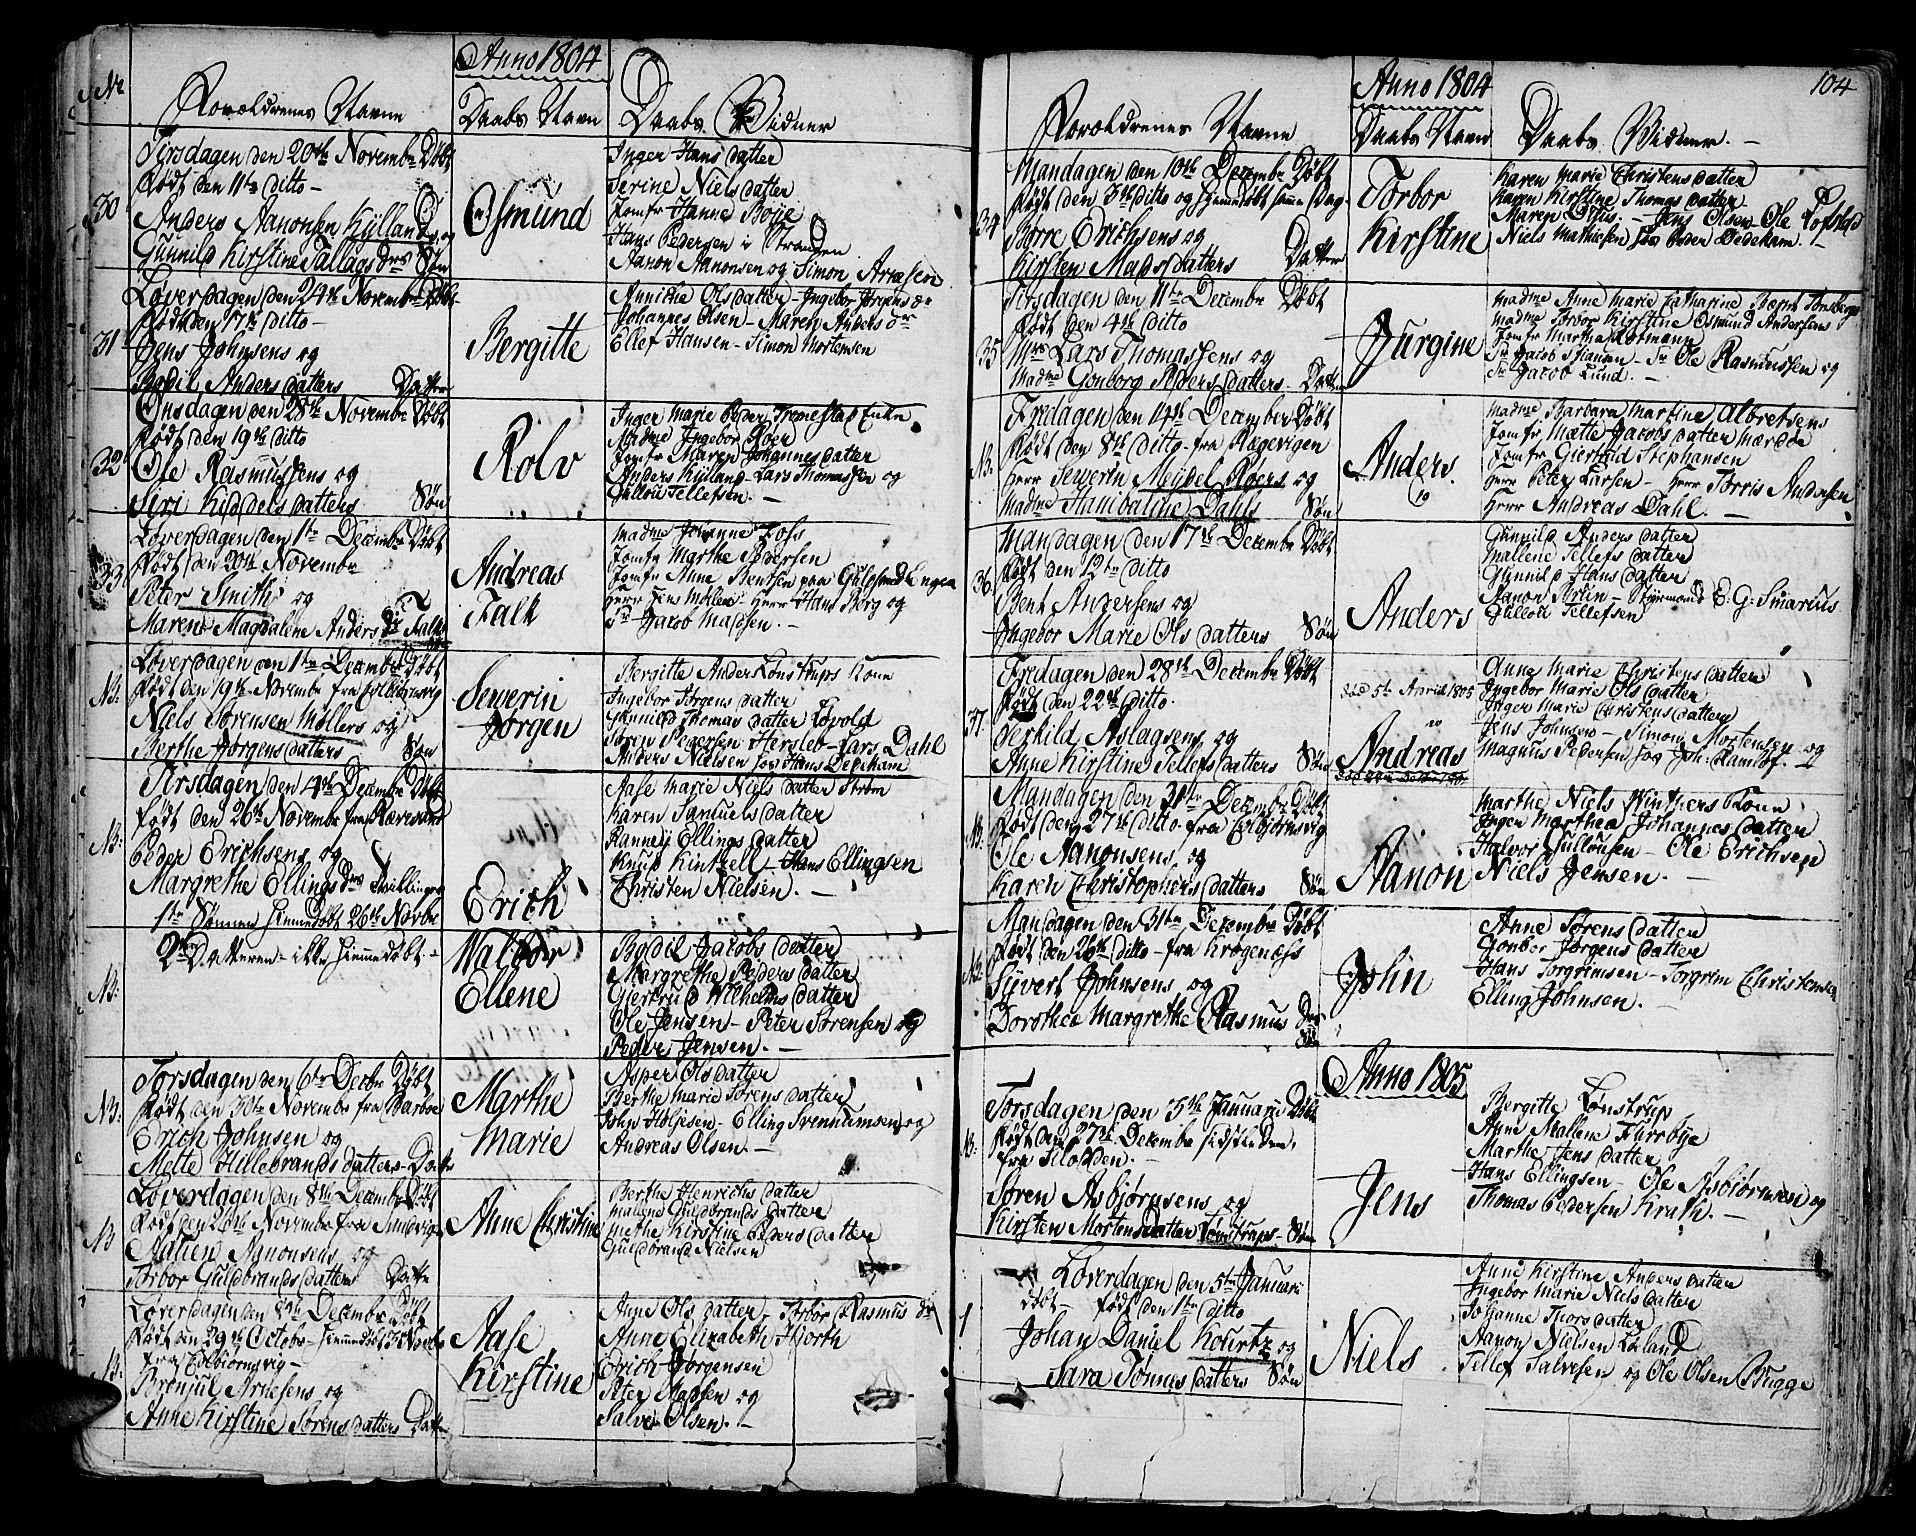 No
Anno 1804
Forældrenes Navne
Daabs Navn
Daabs Vidner
Tirsdagen den 20de Novembr Døbt
Født den 11te ditto –
30
Anders Aanonsen Kylland og
Gunnild Kirstine Tallags drs Søn
Osmund
Inger Hans datter
Serine Niels datter
Jomfr Hanne Boye
Hans Pedersen i Strangen
Aanon Aanonsen og Simon Arnesen
Løverdagen den 24de Novembr Døbt
Født den 17de ditto –
31
Jens Johnsens og
Bodil Anders datters Datter
Bergitte
Annichen Ols datter – Ingebor Jørgens dr
Johannes Olsen – Maren Anders dr
Ellef Hansen – Simon Mortensen
Onsdagen den 28de Novembr Døbt
Født den 19de ditto
32
Ole Rasmussens og
Siri datters Søn
Rolv
Inger Marie Peder Tromestad Enke
Madme Ingebor Roer
Jomfr Maren Johannes datter
Anders Kylland – Lars Thomassen og
Gullou Tellefsen. –
Løverdagen den 1te Decembr Døbt
Født den 20de Novembr
33
Peter Smith og
Maren Magdalene Anders dr Falk
Andreas
Falk
Madme Johanne Foss
Jomfr Marthe Pedersen
Jomfr Anne Bentsen paa Guldsmed Engen
Herr Jens Møller – Herr Hans Borg og
Sr Jacob Madsen. –
Løverdagen den 1te Decembr Døbt
NB:
Født den 19de Novembr fra
Niels Sørensen Møllers og
Berthe Jørgens datters Søn
Sewerin
Jørgen
Bergitte Anders Lønstrups Kone
Ingebor Jørgens datter
Gunnild Thomas datter Løvold
Søren Pedersen Herslev – Lars Dahl
Anders Nielsen hos Hans Dedekam
Tirsdagen den 4de Decembr Døbt
Født den 26de Novembr fra
NB:
Peder Erichsens og
Margrethe Ellings drs Tvillinger
1te Sønnen hiemmedøbt 26de Novbr
Erich
Aase Marie Niels datter Strøm
Karen Samuels datter
Ranney Ellings datter
Knud Kintzell – Hans Ellingsen
Christen Nielsen. –
2den Datteren – ikke hiemmedøbt –
NB:
Walbor
Ellene
Bodil Jacobs datter
Margrethe Peders datter
Giertrud Wilhelms datter
Ole Jensen – Peter Sørensen og
Peder Jensen. –
Torsdagen den 6te Decbr Døbt
NB:
Født den 30te Novembr fra Barboe
Erich Johnsen og
Mette Hillebrands datters – Datter
Marthe
Marie
Asper Ols datter
Berthe Marie Sørens datter
John Holjesen – Elling Svennumsen og
Andreas Olsen. –
Løverdagen den 8de Decembr Døbt
Født den 26de Novembr fra
NB
Aanonsens og
Torbor Guldbrands datters Datter
Anne Christine
Berthe Henrichs datter
Malene Guldbrands datter
Mette Kirstine Peders datter
Guldbrand Nielsen
Løverdagen den 8de Decembr Døbt
Født den 29de Octobr – hiemmedøbt Novbr
fra Eidbiørnsvig –
NB:
Brynjul Arnesens og
Anne Kirstine Sørens datters Datter
Aase
Kirstine
Anne Ols datter – Torbor Rasmus dr
Anne Elizabeth Hjorth
Erich Jørgensen
Peter Madsen og
Salve Olsen. –
104
Anno 1804
Forældrenes Navne
Daabs Navn
Daabs Vidner. –
Mandagen den 10de Decembr Døbt
Født den 3de ditto og hiemmedøbt samme Dag –
34
Børre Erichsens og
Kirsten Mads datters Datter
Torbor
Kirstine
Karen Marie Christens datter
Karen Kirstine Thomas datter
Maren Ditus. – Jens Olsen – Ole Lofsted
Niels Mathiesen hos Peder Dedekam. –
Tirsdagen den 11te Decembr Døbt
Født den 4de ditto
35
Mrs Lars Thomassens og
Madme Gonborg Peders datters – Datter
Jurgine
Madme Anne Marie Catharine Bernt Tønsbergs
Madme Torbor Kirstine Osmund Andersens
Jomfr Martha Rotmann
Sr Jacob Stiansen – Sr Ole Rasmussen og
Sr Jacob Lund. –
Fredagen den 14de December Døbt
Født den 8de ditto – fra Rægevigen
NB.
Herr Sewerin Meydel Roers og
Madme Hanibaline Dahls Søn
Anders.
10
Madme Barbara Martine Albretsens
Jomfr Mætte Jacobs datter Mærdøe
Jomfr Giertrud Stephansen
Herr Peter Larsen – Herr Torris Andersen
Herr Andreas Dahl. –
Mandagen den 17de Decembr Døbt
Født den 12te ditto
36
Bent Andersens og
Ingebor Marie Ols datters Søn
Anders
Gunnild Anders datter
Mallene Tellefs datter
Gunnild Hans datter
Aanon Sørn – Styrmand E. G. Smarius
Gullou Tellefsen
Fredagen den 28de Decembr Døbt
Født den 22de ditto.
37
Terkild Aslagsens og
Anne Kirstine Tellefs datters Søn
død 5te April 1805
Andreas
Anne Marie Christens datter
Ingebor Marie Ols datter
Inger Marie Christens datter
Jens Johnsen – Simon Mortensen og
Magnus Pedersen hos Joh: Ramlof. –
Mandagen den 31te Decembr Døbt
Født den 27de ditto – fra Eidbiørnsvig
NB.
Ole Aanonsens og
Karen Christophers datters Søn
Aanon
Marthe Niels Winthers Kone
Ingen Marthea Johannes datter
Halvor Gullousen – Ole Erichsen
Niels Jensen. –
Mandagen den 31te Decembr Døbt
Født den 26de ditto – fra Krogenæss
NB.
Syvert Johnsens og
Dorothea Margrethe Rasmus drs
Søn
John
Anne Sørens datter
Gonbor Jørgens datter
Hans Torgrimsen – Torgrim Christensen
Elling Johnsen. –
Anno 1805
Torsdagen den 3de Januarii Døbt
NB.
Født den 27de Decembr sidstleden,
fra Kilolden. –
Søren Asbjørnsens og
Kirsten Mortens datter Lønstrups – Søn
Jens
Bergitte Lønstrup
Anne Mallene Furrbye
Marthe Jens datter
Hans Ellingsen – Ole Asbiørnsen og
Thomas Pedersen Krath. –
Løverdagen den 5te Januarii
Døbt – født den 1te ditto
1
Johan Daniel Kourtz og
Sara Tønnis datters Søn
Niels
Anne Kirstine Anders datter
Ingebor Marie Niels datter
Johanne Thors datter
Aanon Nielsen Løland
Tellef Salvesen og Ole Olsen Brygge